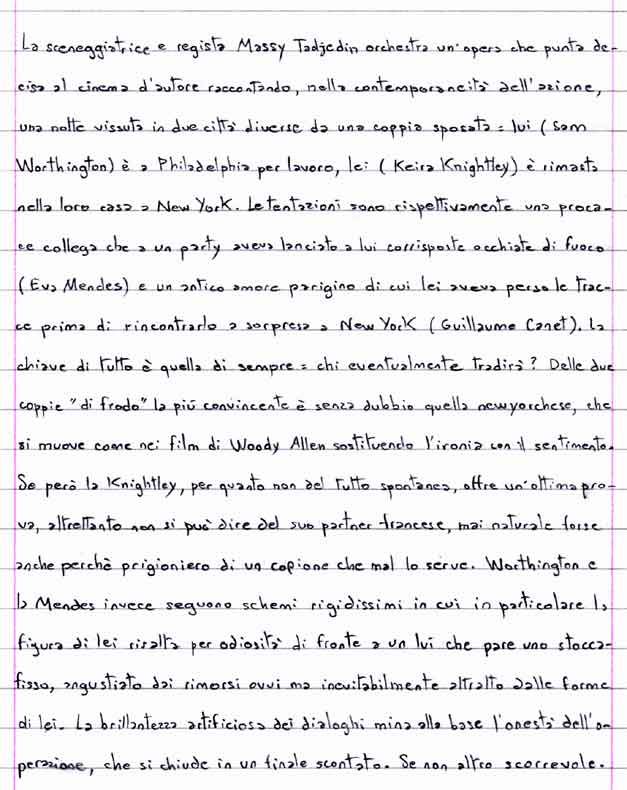 La sceneggiatrice e regista Massy Tadjedin orchestra un'opera che punta de-
cisa al cinema d'autore raccontando, nella contemporaneità dell'azione,
una notte vissuta in due città diverse da una coppia sposata: lui (Sam
Worthington) è a Philadelphia per lavoro, lei (Keira Knightley) è rimasta
nella loro casa a New York. Le tentazioni sono rispettivamente una proca-
ce collega che a un party aveva lanciato a lui corrisposte occhiate di fuoco
(Eva Mendes) e un antico amore parigino di cui lei aveva perso le trac-
ce prima di rincontrarlo a sorpresa a New York (Guillaume Canet). La
chiave di tutto è quella di sempre: chi eventualmente tradirà? Delle due
coppie "di frodo" la più convincente è senza dubbio quella newyorchese, che
si muove come nei film di Woody Allen sostituendo l'ironia con il sentimento.
Se però la Knightley, per quanto non del tutto spontanea, offre un'ottima pro-
va, altrettanto non si può dire del suo partner francese, mai naturale forse
anche perchè prigioniero di un copione che mal lo serve. Worthington e
la Mendes invece seguono schemi rigidissimi in cui in particolare la
figura di lei risalta per odiosità di fronte a un lui che pare uno stocca-
fisso, angustiato dai rimorsi ovvi ma inevitabilmente attratto dalle forme
di lei. La brillantezza artificiosa dei dialoghi mina alla base l'onestà dell'o-
perazione, che si chiude in un finale scontato. Se non altro scorrevole.